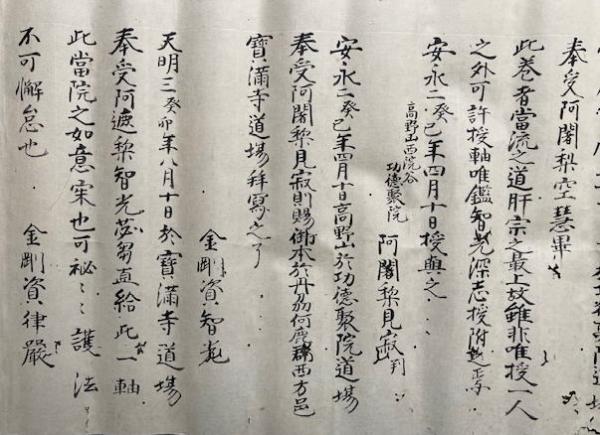 奉受阿闍梨空慧畢
此卷者當流之道肝宗之最上故雖非唯授一人
之外可許授軸唯鑑智光深志授附
安永二癸巳年四月十日授與之
高野山西院谷
功德聚院
阿闍梨見寂判
安永二癸巳年四月十日高野山於功德聚院道場
奉受阿闍梨見寂則賜御本於丹州何鹿郡西方邑
寶滿寺道場拜寫之了
金剛資智光
天明三癸卯年八月十日於寶滿寺道場
奉受阿遮梨智光苾芻直給此一軸
此當院之如意寀也可祕々護法
不可懈怠也
金剛資律嚴